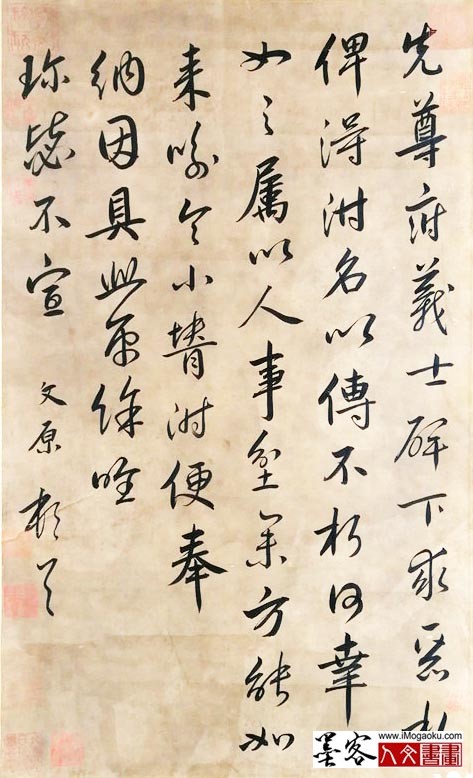 先尊府義士碑下求惡札
俾得附名以傳不朽何幸
如之属以人事坌集方能如
来喻令小壻附便奉
納因具此餘唯
珍毖不宣 文原 頓首
www.iMogaoku.com
墨客人文書畫